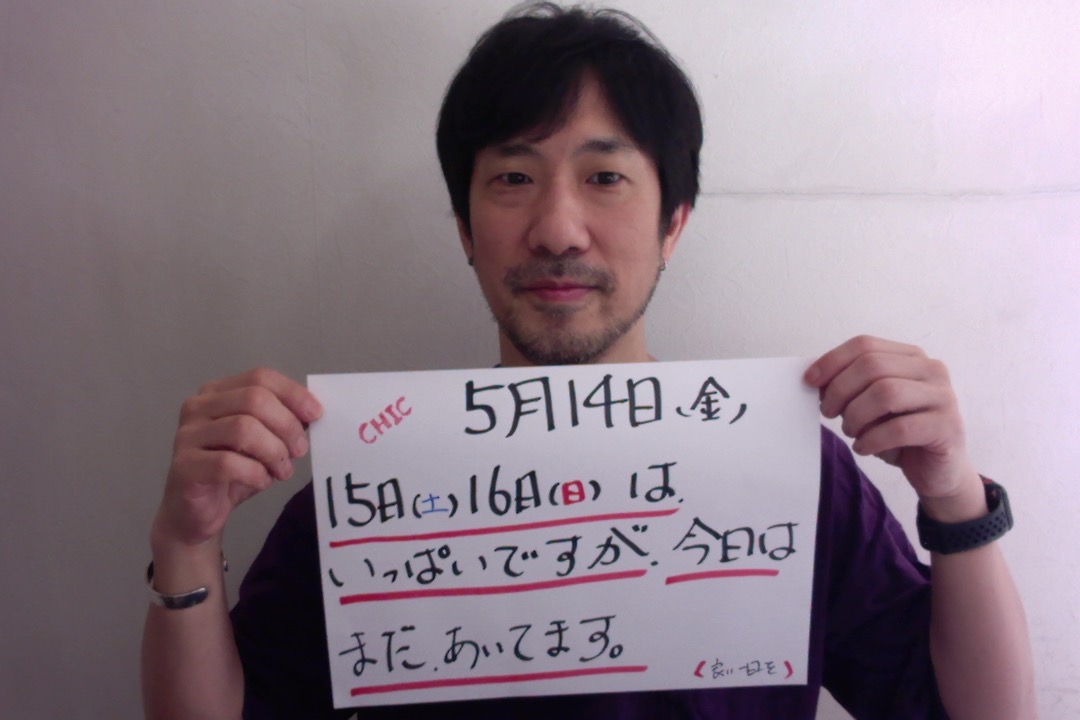 CHIC
5月14日(金)
15日(土)16日(日)は、
いっぱいですが、今日は
まだ、あいてます。
(良い一日を)